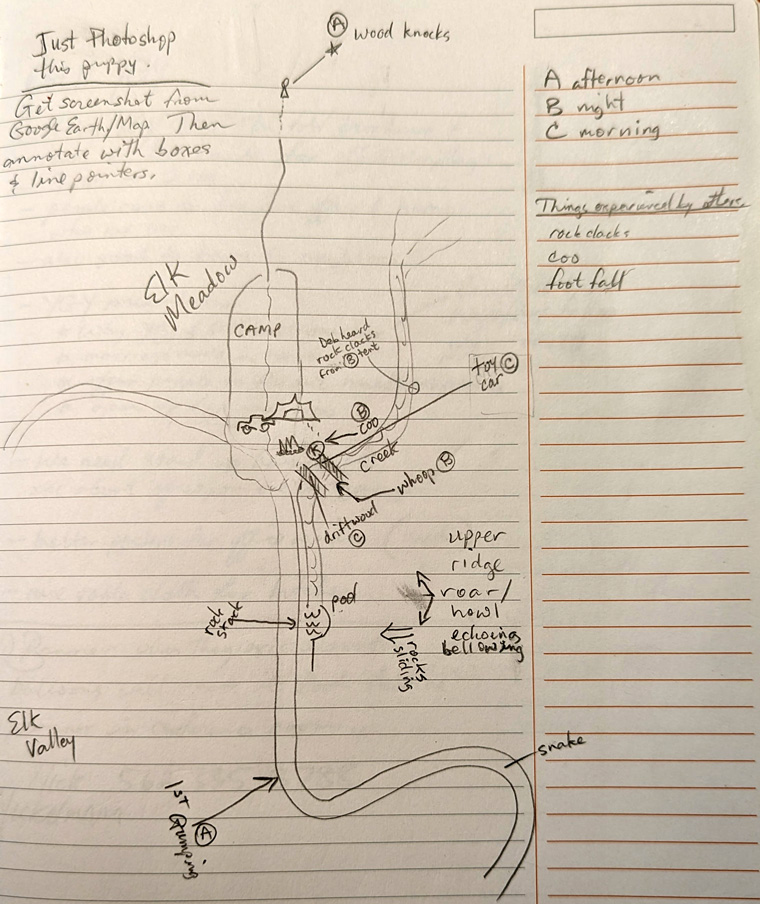 Just Photoshop
this puppy.
Get screenshot from
Google Earth/Map. Then
annotate with boxes
& line pointers.
A wood knocks
A afternoon
B night
C morning
Things experienced by others
rock clacks
coo
foot fall
Elk
Meadow
CAMP
Deb heard
rock clacks
from B tent
toy C
car
B
coo
K
creek
whoop B
driftwood
C
upper
ridge
roar/
howl
echoing
bellowing
rocks
sliding
pool
rock
stack
Elk
Valley
snake
1st
A